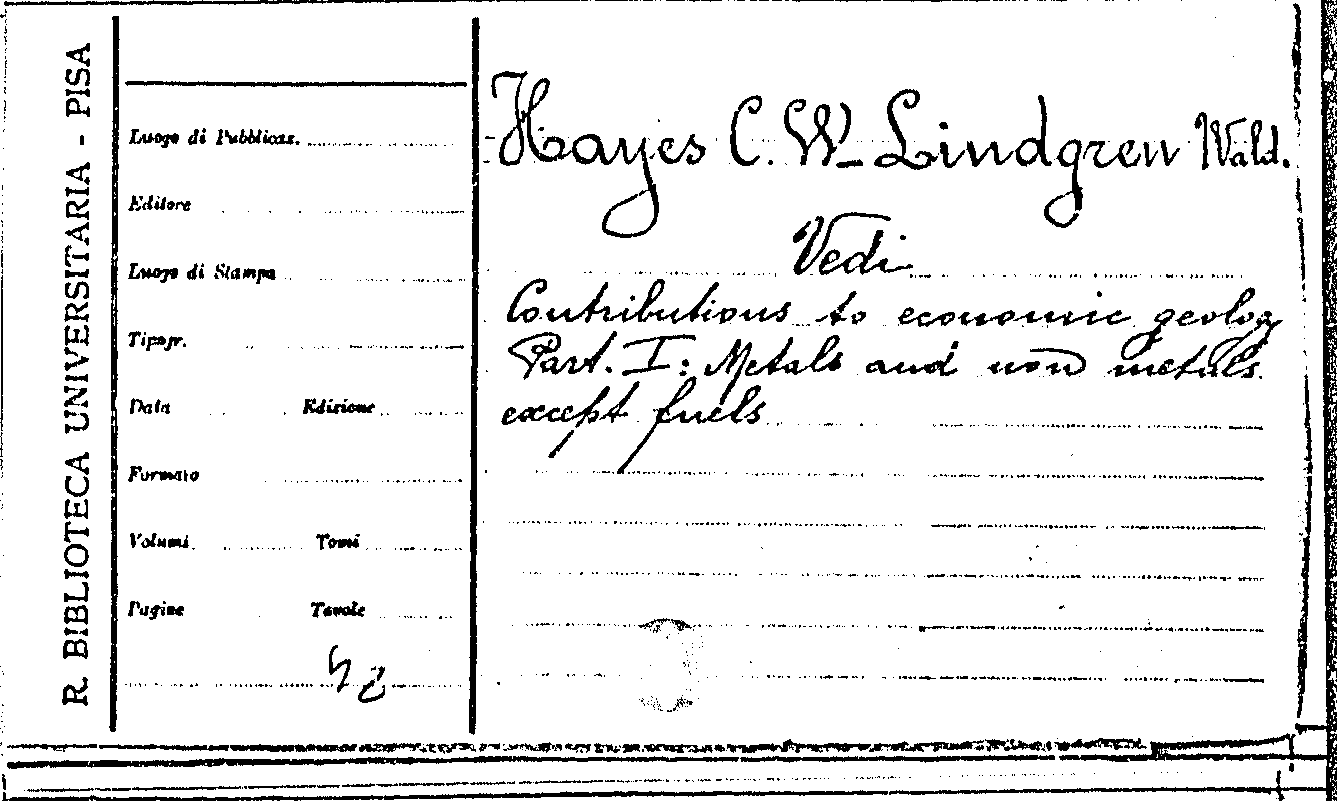 R. BIBLIOTECA UNIVERSITARIA - PISA
Luogo di Pubblicas.
Editore
Luogo di Stampa
Tipogr.
Data Edizione
Formato
Volumi Tomi
Pagine Tavole
Hayes C. W. - Lindgren Wald.
Vedi
Contributions to economic geolog
Part. I: Metals and non metals
except fuels